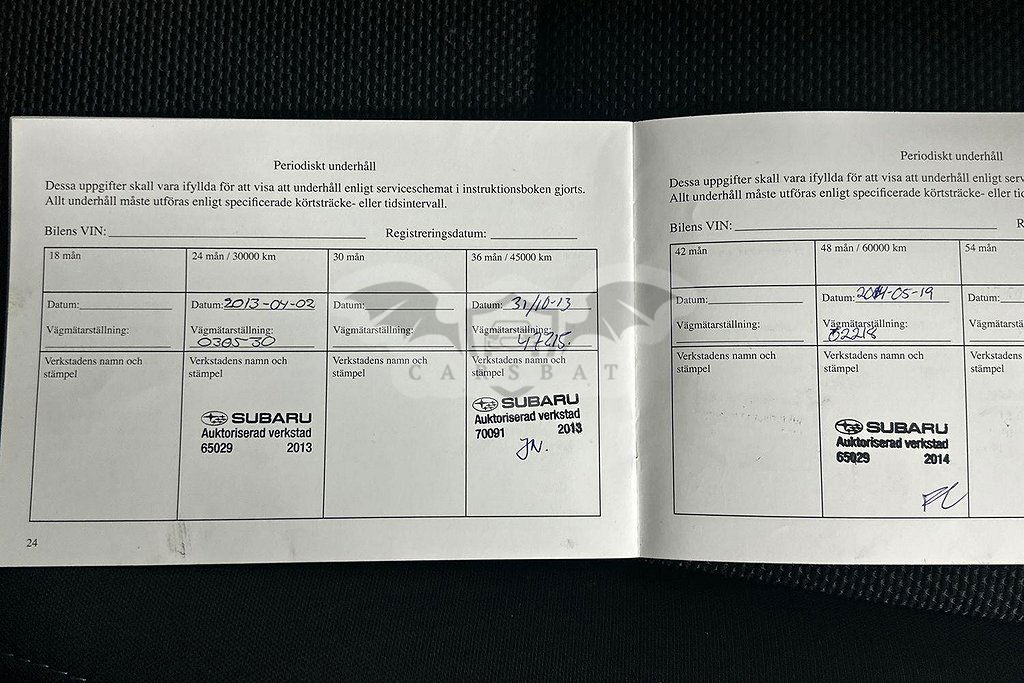 Periodiskt underhåll
Dessa uppgifter skall vara ifyllda för att visa att underhåll enligt serviceschemat i instruktionsboken gjorts.
Allt underhåll måste utföras enligt specificerade körtsträcke- eller tidsintervall.
Bilens VIN: Registreringsdatum:
18 mån 24 mån / 30000 km 30 mån 36 mån / 45000 km
Datum: Datum: 2013-04-02 Datum: Datum: 31/10-13
Vägmätarställning: Vägmätarställning: Vägmätarställning: Vägmätarställning:
47215.
Verkstadens namn och Verkstadens namn och Verkstadens namn och Verkstadens namn och
stämpel stämpel stämpel stämpel
SUBARU SUBARU
Auktoriserad verkstad Auktoriserad verkstad
65029 2013 70091 2013
JN.
24
CARSBAT
Periodiskt underhåll
Dessa uppgifter skall vara ifyllda för att visa att underhåll enligt
Allt underhåll måste utföras enligt specificerade körtsträcke- eller
Bilens VIN:
42 mån 48 mån / 60000 km 54 mån
Datum: Datum: 2014-05-19 Datum:
Vägmätarställning: Vägmätarställning:
Verkstadens namn och Verkstadens namn och Verkstadens
stämpel stämpel stämpel
SUBARU
Auktoriserad verkstad
65029 2014